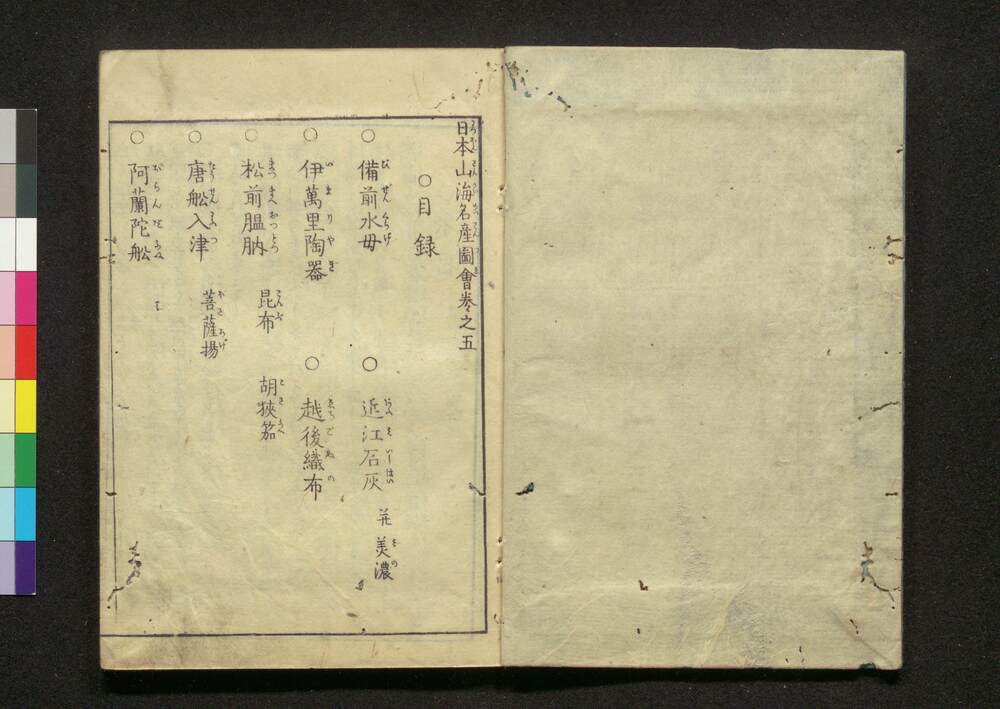 日本山海名産圖會巻之五
○目録
○備前水母
○近江石灰 并美濃
○伊萬里陶器
○越後織布
○松前膃肭
昆布
胡狹笳
○唐舩入津
菩薩揚
○阿蘭陀舩